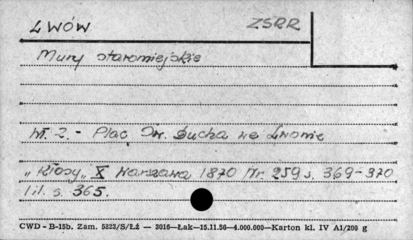 LWÓW ZSRR
Mury staromiejskie
W. Z. - Plac Św. Ducha we Lwowie
„Kłosy" X Warszawa 1870 Nr. 259 s. 369-370
il. s. 365.
CWD - B-15b. Zam. 5823/S/Łź — 3016—Łak—15.11.56—4.000.000—Karton kl. IV A1/200 g